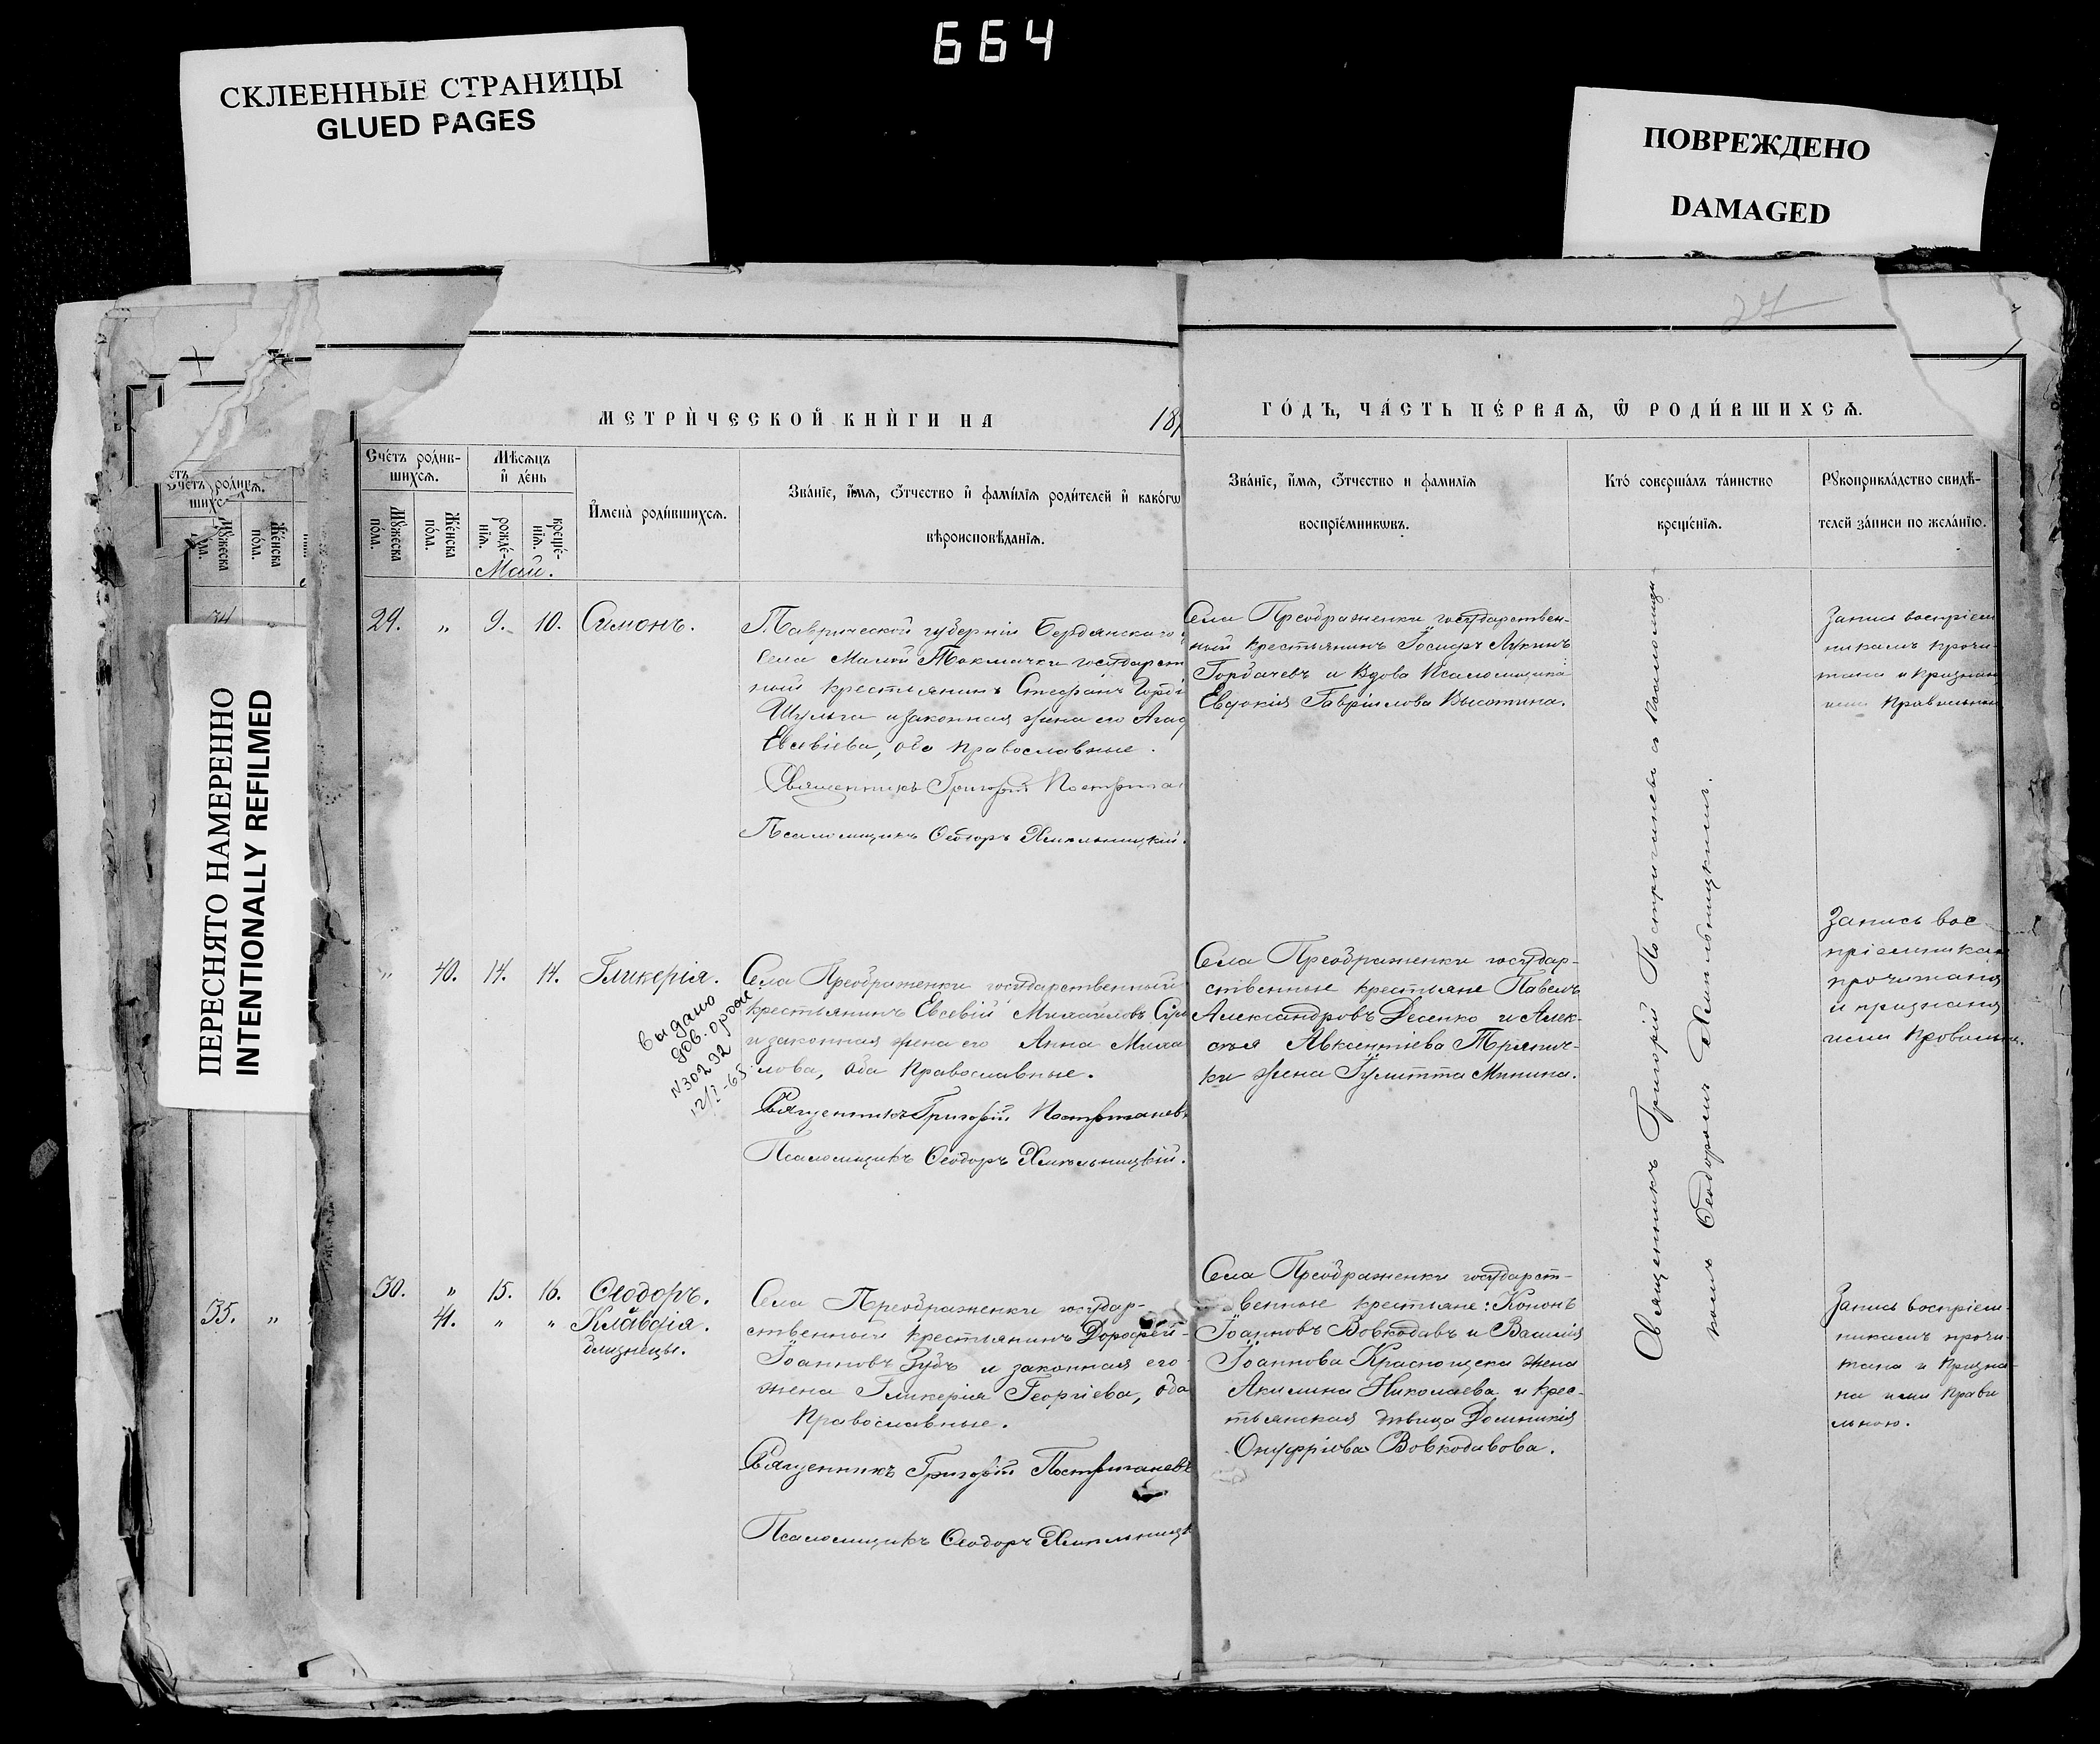 664
СКЛЕЕННЫЕ СТРАНИЦЫ
GLUED PAGES
ПОВРЕЖДЕНО
DAMAGED
ПЕРЕСНЯТО НАМЕРЕННО
INTENTIONALLY REFILMED
27
МЕТРИ́ЧЕСКОЙ КНИ́ГИ НА 18
ГО́ДЪ, ЧА́СТЬ ПЕ́РВАѦ, Ѿ РОДИ́ВШИХСѦ.
Сче́тъ роди́в-
шихсѧ.
Мꙋ́жеска
по́ла.
Же́нска
по́ла.
Мѣ́сѧцъ
и҆ де́нь
рожде́-
нїѧ.
креще́-
нїѧ.
Май.
И҆мена̀ роди́вшихсѧ.
Зва́нїе, и҆́мѧ, ѻ҆́тчество и҆ фами́лїѧ роди́телей и҆ како́гѡ
вѣроисповѣ́данїѧ.
Зва́нїе, и҆́мѧ, ѻ҆́тчество и фами́лїѧ
воспрїе́мникѡвъ.
Кто̀ соверша́лъ та́инство
креще́нїѧ.
Рꙋкоприкла́дство свидѣ́-
телей за́писи по жела́нїю.
29. „ 9. 10. Симонъ.
Таврической губерніи Бердянскаго
села Малой Токмачки государст
ный крестьянинъ Стефанъ Горді
Шульга и законная жена его Агаѳ
Евсевіева, оба православные.
Священникъ Григорій Постриган
Псаломщикъ Ѳеодоръ Хмельницкій.
Села Преображенки государствен-
ный крестьянинъ Іосифъ Лукинъ
Горбачевъ и вдова Псаломщика
Евдокія Гавріилова Высотина.
Запись воспріем
никамъ прочи-
тана и признан
ими правильн
„ 40. 14. 14. Гликерія.
Села Преображенки государственный
крестьянинъ Евсевій Михайловъ
и законная жена его Анна Миха
лова, оба православные.
Священникъ Григорій Постриганевъ
Псаломщикъ Ѳеодоръ Хмельницкій.
Выдано
№30292
12/I-65
Села Преображенки государ-
ственные крестьяне Павелъ
Александровъ Десенко и Алек-
сѣя Авксентіева Трянич-
ки жена Іулитта Минина.
Запись вос-
пріемникам
прочитана
и признана
ими правильн.
30. „ 15. 16. Ѳеодоръ.
41. „ „ Клавдія.
близнецы.
Села Преображенки государ-
ственный крестьянинъ Дороѳей
Іоанновъ Зубъ и законная его
жена Гликерія Георгіева, оба
православные.
Священникъ Григорій Постриганевъ
Псаломщикъ Ѳеодоръ Хмельницк
Села Преображенки государст-
венные крестьяне: Кононъ
Іоанновъ Вовкодавъ и Василія
Іоаннова Краснощека жена
Акилина Николаева и крес-
тьянская дѣвица Домникія
Онуфріева Вовкодавова.
Запись воспріем-
никамъ прочи-
тана и призна-
на ими прави
льною.
Священникъ Григорій Постриганевъ съ псаломщи-
комъ Ѳеодоромъ Хмельницкимъ.
35. „